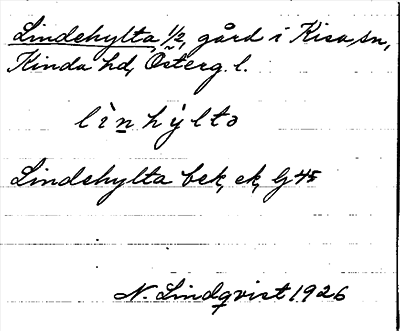 Lindehylta, 1/2, gård i Kisa sn,
Kinda hd, Österg. l.
lìnhy̆ltə
Lindehylta bek, ek, G 45
N. Lindqvist 1926